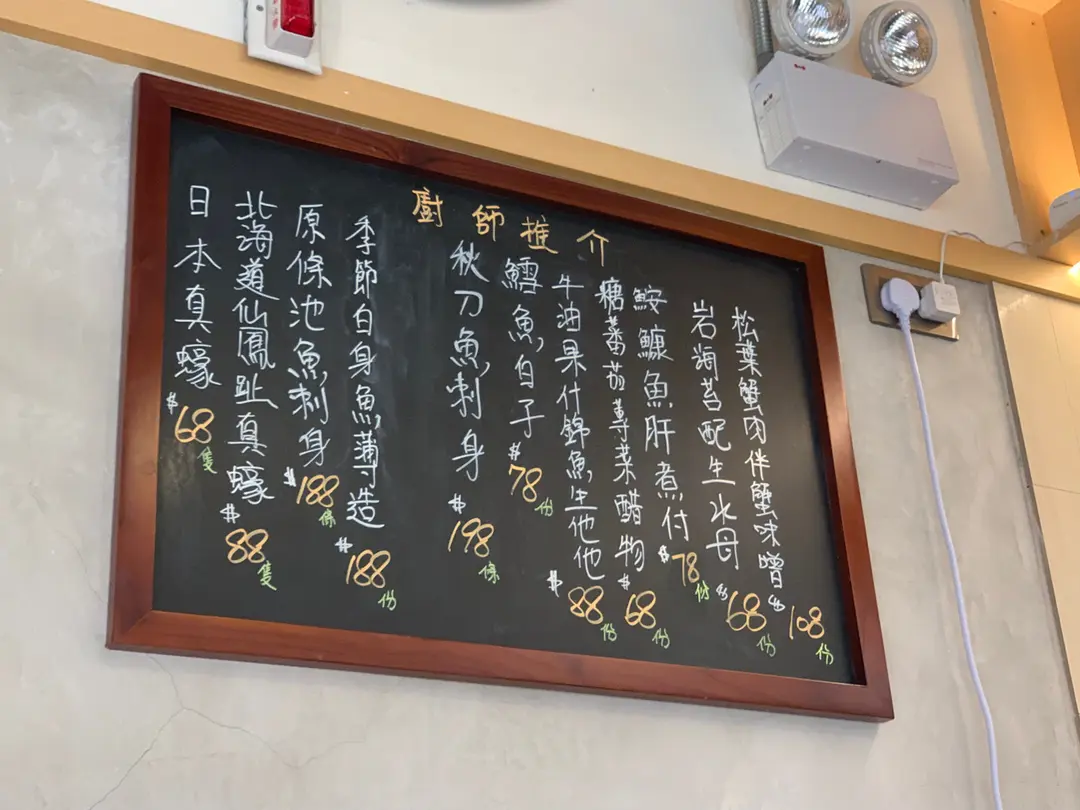 廚師推介
松葉蟹肉伴蟹味噌 $108份
岩海苔配生水母 $68份
鮟鱇魚肝煮付 $78份
糖蕃茄蓴菜醋物 $68份
牛油果什錦魚生他他 $88份
鱈魚白子 $78份
秋刀魚刺身 $198條
季節白身魚薄造 $188份
原條池魚刺身 $188條
北海道仙鳳趾真蠔 $88隻
日本真蠔 $68隻